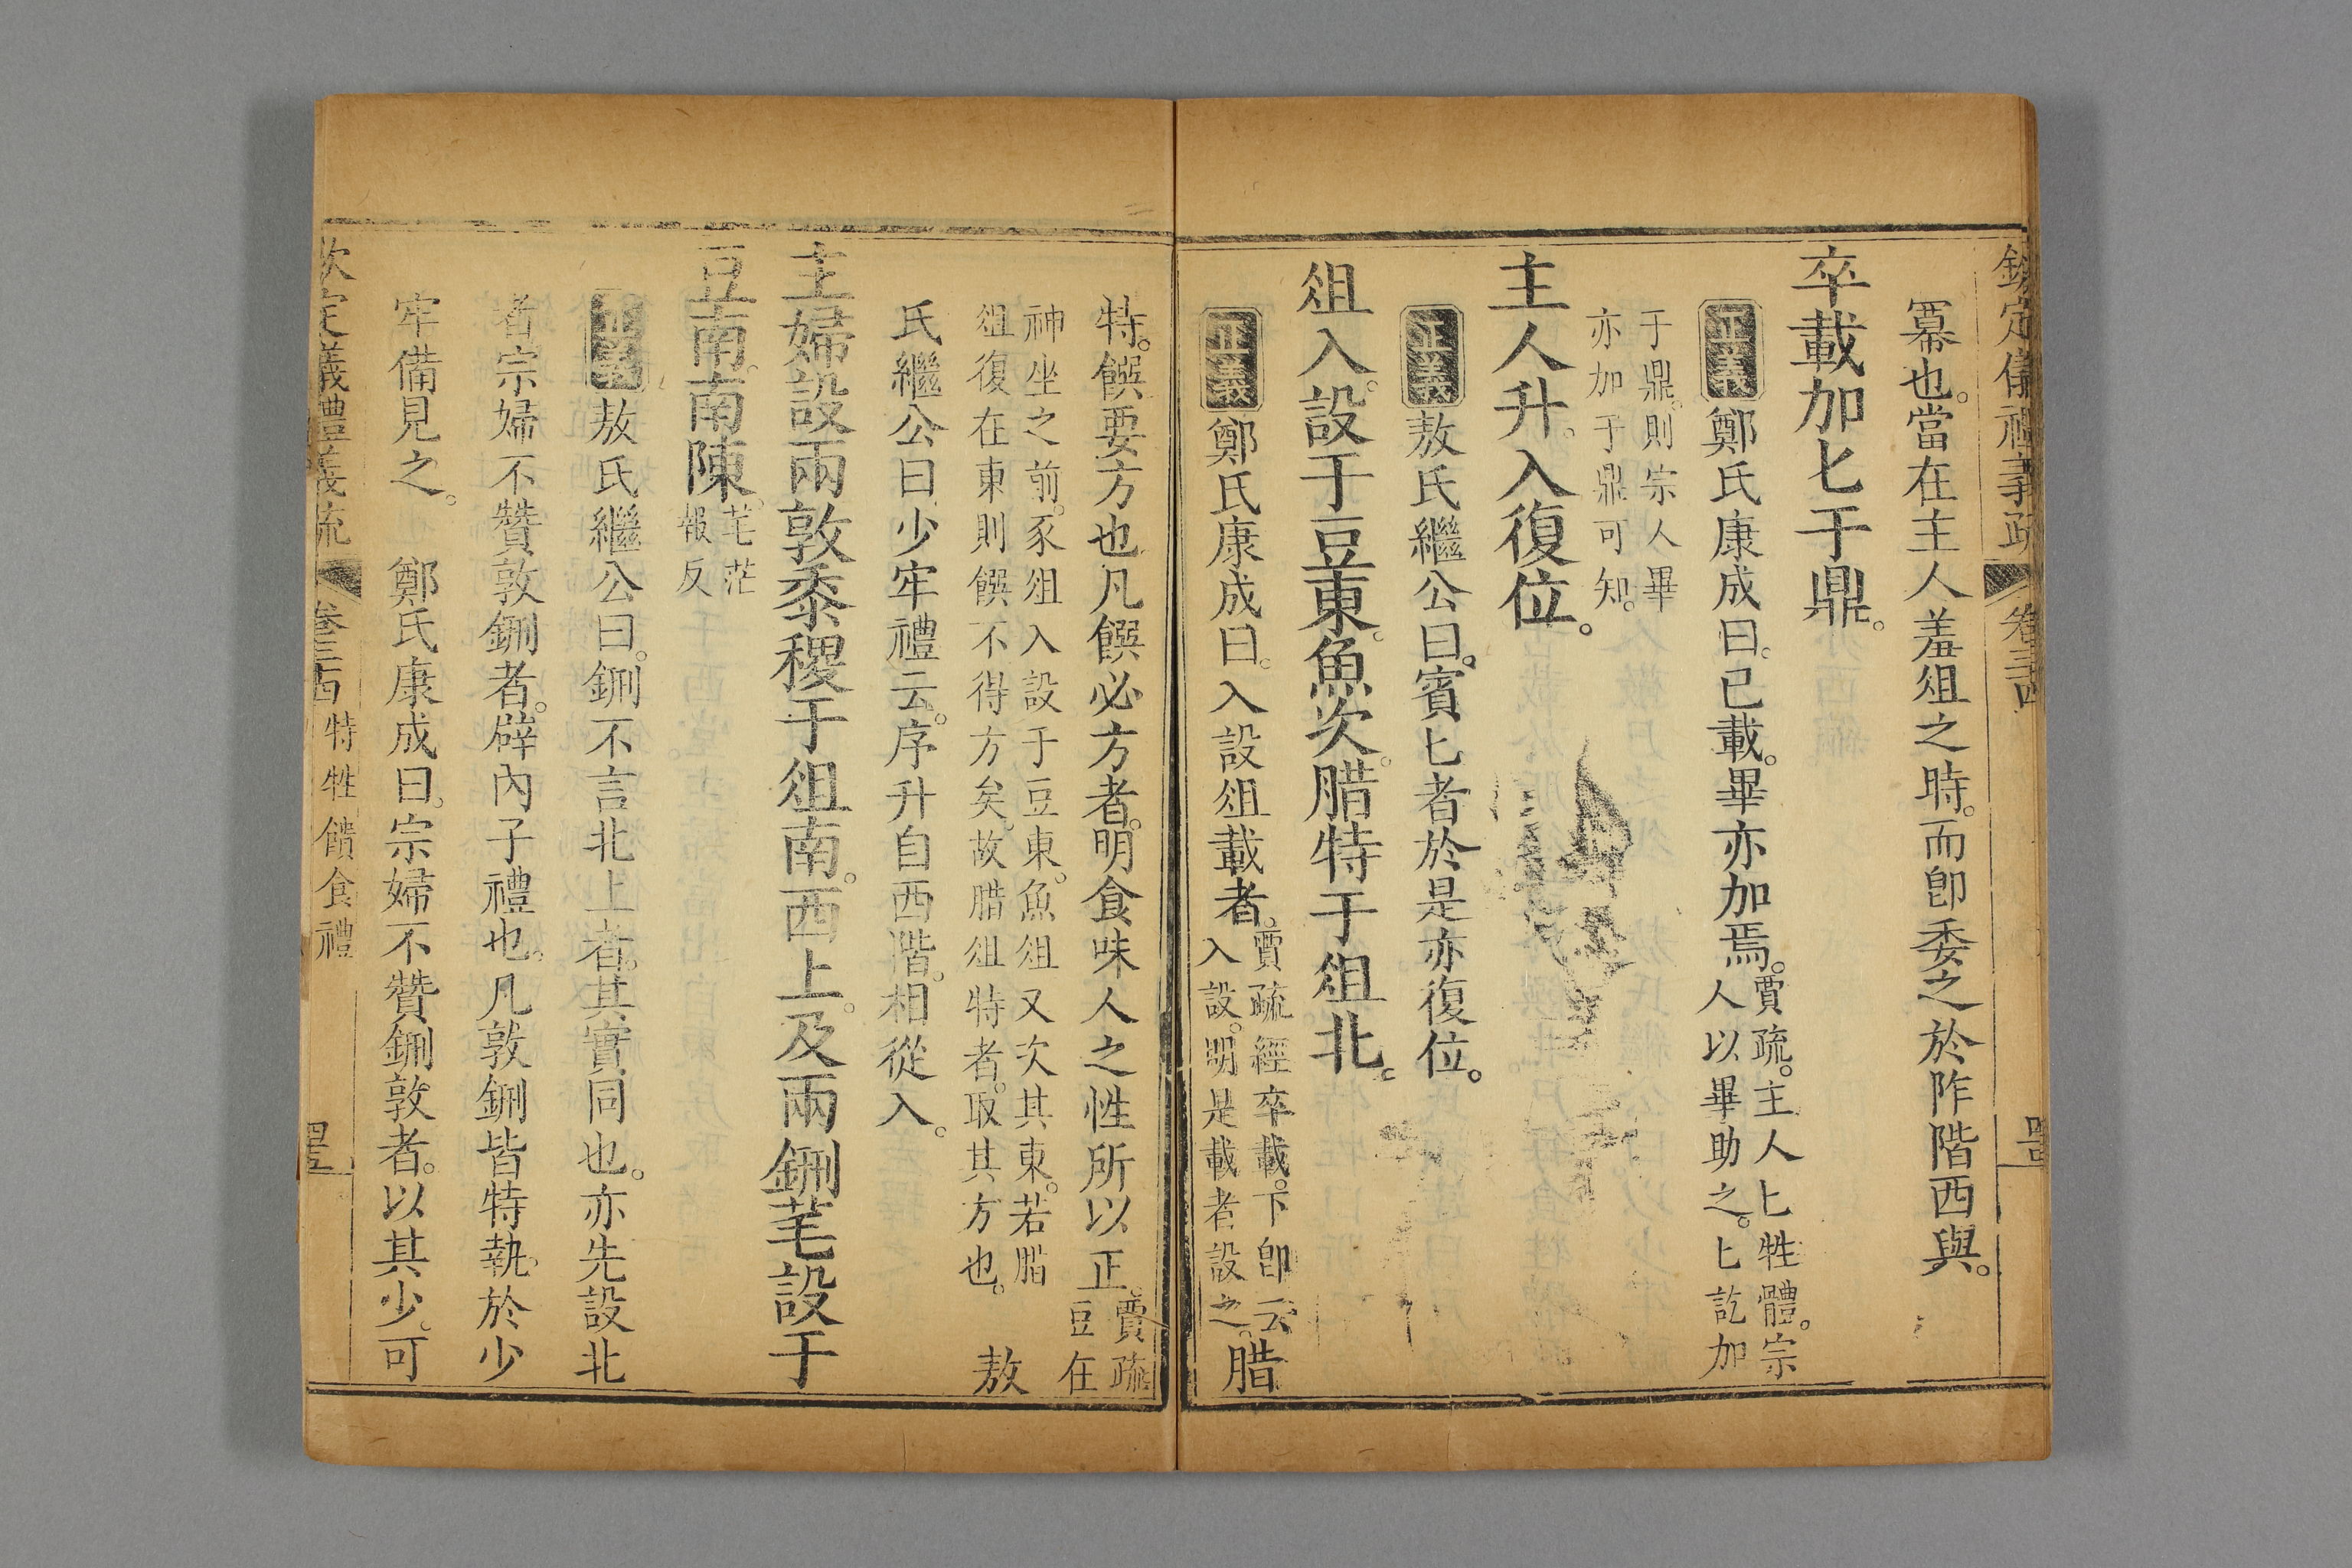 欽定儀禮義疏 卷三十四
冪也。當在主人羞俎之時。而卽委之於阼階西與。
卒載加匕于鼎。
正義 鄭氏康成曰。已載。畢亦加焉。
賈疏。主人匕牲體。宗
人以畢助之。匕訖加
于鼎。則宗人畢
亦加于鼎可知。
主人升。入復位。
正義 敖氏繼公曰。賓匕者於是亦復位。
俎入。設于豆東。魚次。腊特于俎北。
正義 鄭氏康成曰。入設俎載者。
賈疏經卒載。下卽云
入設。明是載者設之。
腊
特。饌要方也。凡饌必方者。明食味人之性所以正。
賈疏
豆在
神坐之前。豕俎入設于豆東。魚俎又次其東。若腊
俎復在東則饌不得方矣。故腊俎特者。取其方也。
敖
氏繼公曰。少牢禮云。序升自西階。相從入。
主婦設兩敦黍稷于俎南。西上。及兩鉶芼設于
豆南。南陳。
芼茫
報反
正義 敖氏繼公曰。鉶不言北上者。其實同也。亦先設北
者宗婦不贊敦鉶者。辟內子禮也。凡敦鉶皆特執。於少
牢備見之。 鄭氏康成曰。宗婦不贊鉶敦者。以其少。可
欽定儀禮義疏 卷三十四 特牲饋食禮